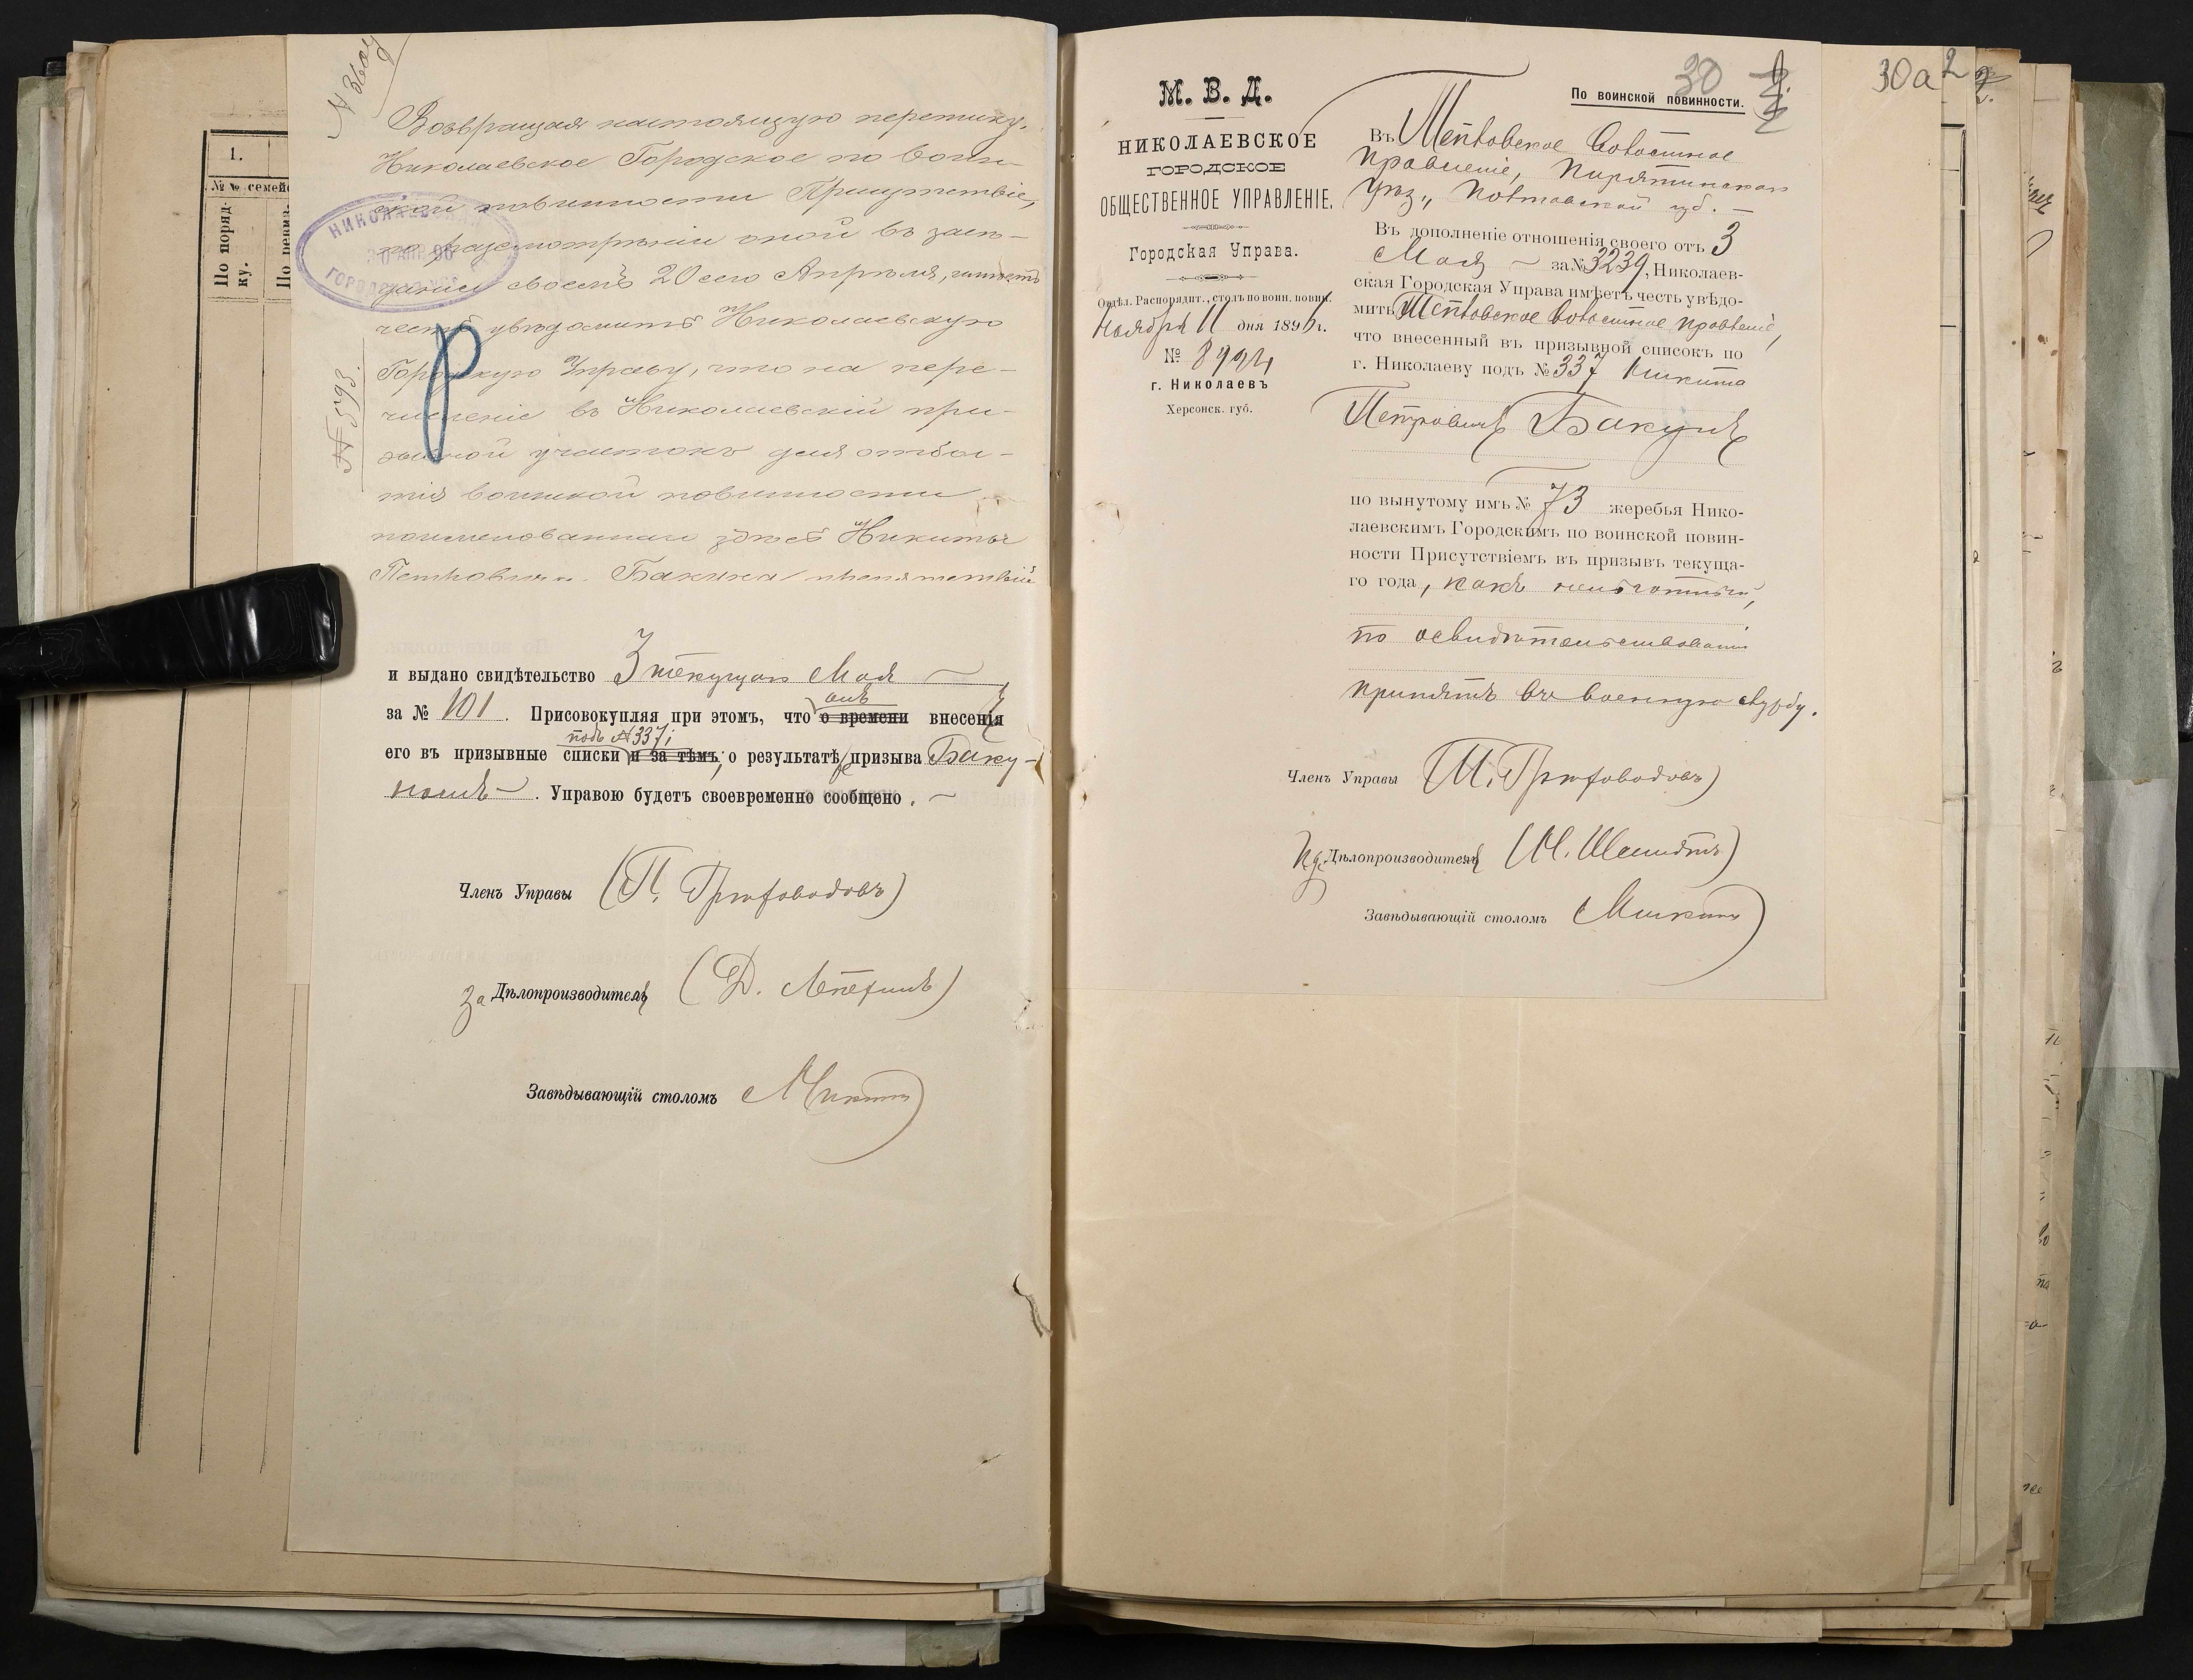 1.
№№ семей
По поряд-
ку.
Возвращая настоящую переписку,
Николаевское Городское по воин-
ской повинности Присутствіе,
по разсмотрѣніи оной въ засѣ-
даніи своемъ 20 сего Апрѣля, имѣетъ
честь увѣдомить Николаевскую
Городскую Управу, что на пере-
численіе въ Николаевскій при-
зывной участокъ для отбы-
тія воинской повинности
поименованнаго здѣсь Никиты
Петровича Бакуна препятствій
№ 593.
НИКОЛАЕВ
АПР. 96
ГОРОД
и выдано свидѣтельство 3 текущаго Мая
за № 101. Присовокупляя при этомъ, что о времени внесенія
онъ
его въ призывные списки и за тѣмъ, о результатѣ призыва Баку-
подъ № 337;
номъ. Управою будетъ своевременно сообщено.
Членъ Управы
За Дѣлопроизводителя
Завѣдывающій столомъ
30
30а 2
М. В. Д.
НИКОЛАЕВСКОЕ
ГОРОДСКОЕ
ОБЩЕСТВЕННОЕ УПРАВЛЕНІЕ.
Городская Управа.
Отдѣл. Распорядит., столъ по воин. повин.
Ноября 11 дня 1896 г.
№ 8994
г. Николаевъ
Херсонск. губ.
По воинской повинности.
Въ Волостное
Правленіе, Пирятинскаго
уѣз., Полтавской губ.
Въ дополненіе отношенія своего отъ 3
Мая за № 3239, Николаев-
ская Городская Управа имѣетъ честь увѣдо-
мить Волостное Правленіе,
что внесенный въ призывной списокъ по
г. Николаеву подъ № 337 Никита
Петровичъ Бакунъ
по вынутому имъ № 73 жеребья Нико-
лаевскимъ Городскимъ по воинской повин-
ности Присутствіемъ въ призывъ текуща-
го года, какъ нельготный,
по освидѣтельствованіи
принятъ въ военную службу.
Членъ Управы
Дѣлопроизводителя
Завѣдывающій столомъ